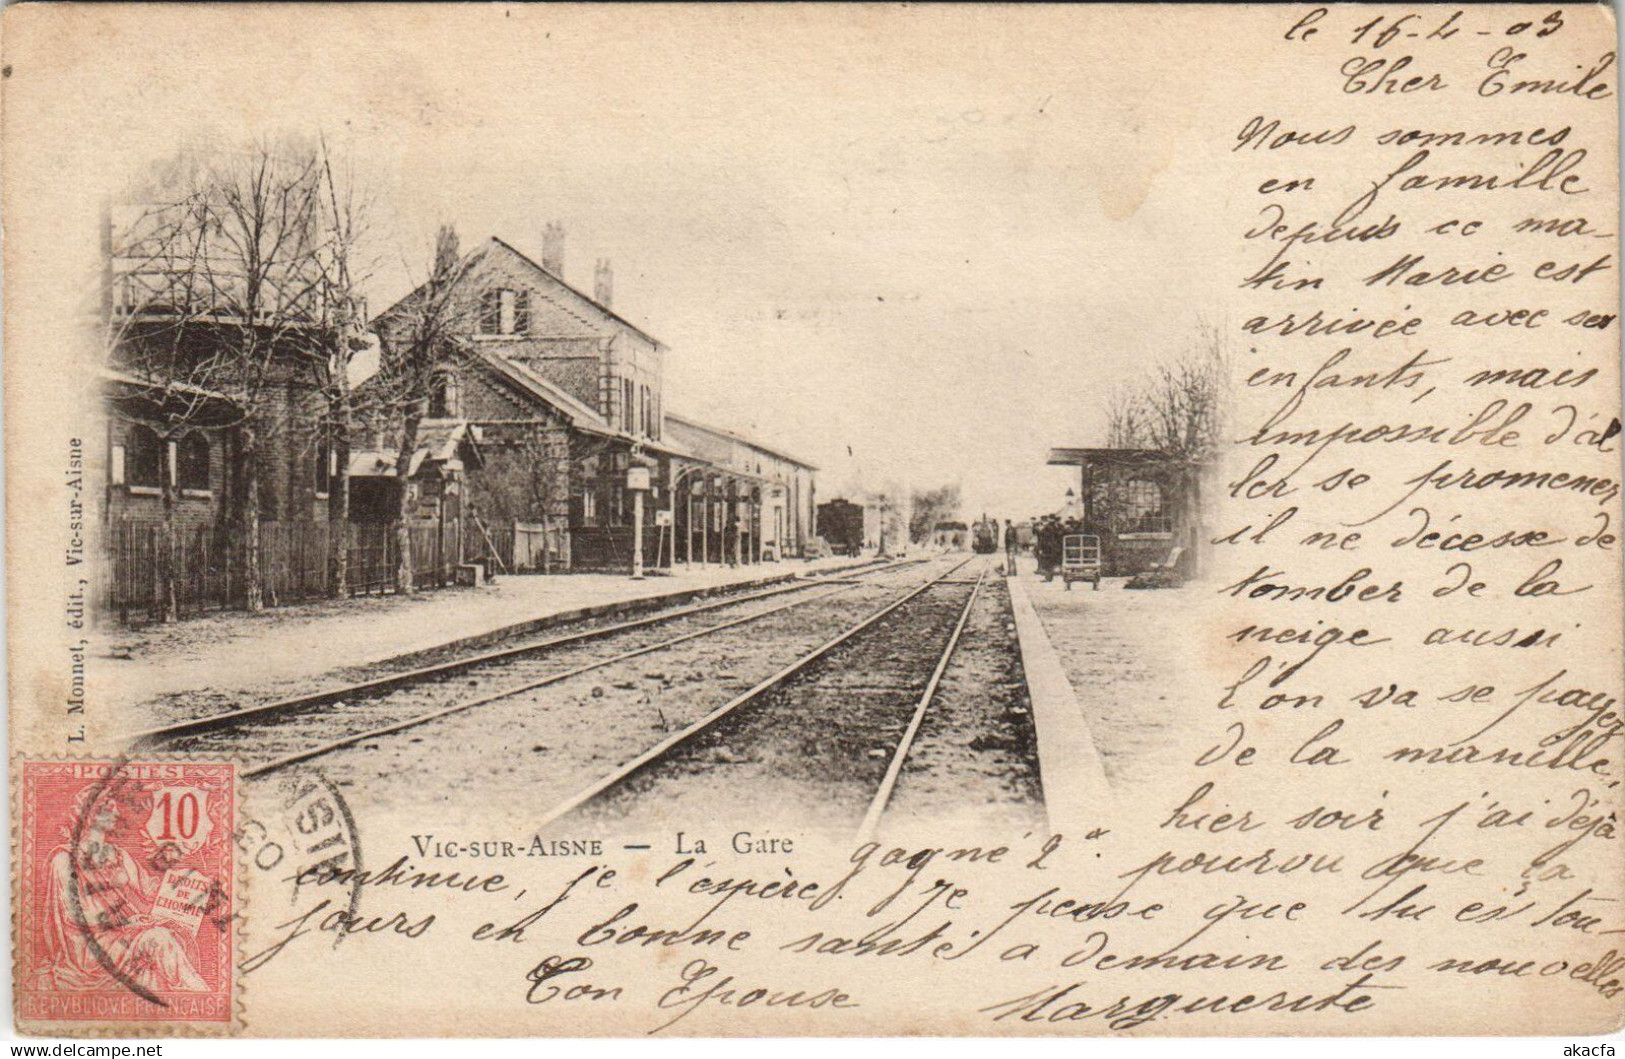 le 16-4-03
Cher Emile
Nous sommes
en famille
depuis ce ma-
tin Marie est
arrivée avec ses
enfants, mais
impossible d'al
ler se promener
il ne décesse de
tomber de la
neige aussi
l'on va se payer
de la manille,
hier soir j'ai déjà
gagné 2 d. pourvu que ça
continue, je l'espère. Je pense que tu es tou-
jours en bonne santé a demain des nouvelles
Ton Epouse Marguerite
L. Monnet, édit., Vic-sur-Aisne
VIC-SUR-AISNE — La Gare
POSTES
10
DROITS
DE
L'HOMME
REPVBLIQVE FRANÇAISE
akacfa